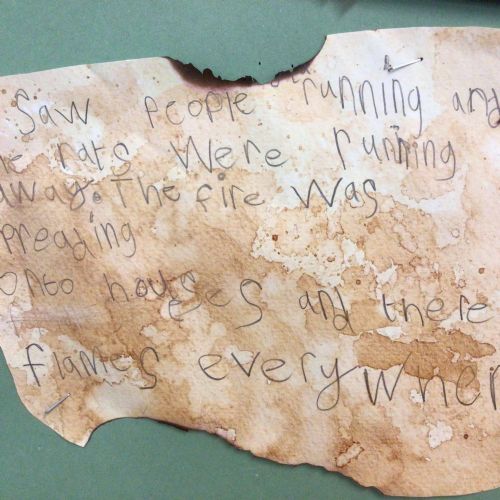 saw people running and
he rats were running
away. The fire was
preading
onto houses and there
flames everywher